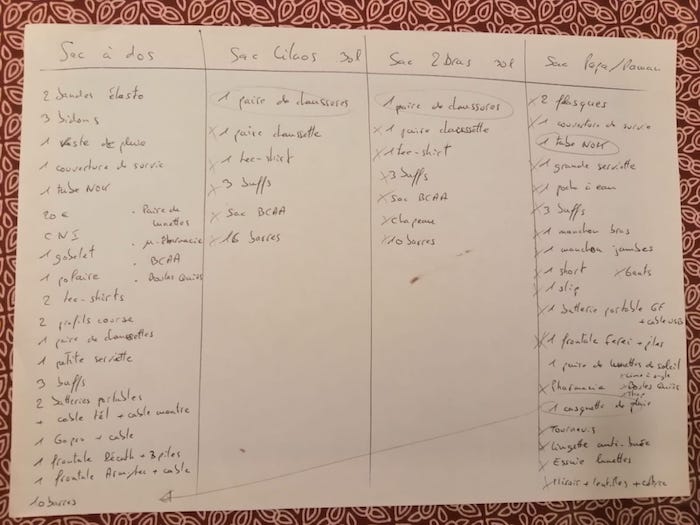 Sac à dos
2 bandes élasto
3 bidons
1 veste de pluie
1 couverture de survie
1 tube NOK
20 €
CNI
1 gobelet
1 polaire
. Paire de lunettes
. µ-Pharmacie
. BCAA
. Boules Quiès
2 tee-shirts
2 profils course
1 paire de chaussettes
1 petite serviette
3 buffs
2 batteries portables
+ cable tél + cable montre
1 Gopro + cable
1 frontale Décath + 3 piles
1 frontale Armytec + cable
10 barres
Sac Cilaos 30l
1 paire de chaussures
1 paire chaussette
1 tee-shirt
3 buffs
sac BCAA
16 barres
Sac 2 bras 30l
1 paire de chaussures
1 paire chaussette
1 tee-shirt
3 buffs
sac BCAA
chapeau
10 barres
Sac Papa/Maman
2 flasques
1 couverture de survie
1 tube NOK
1 grande serviette
1 poche à eau
3 buffs
1 manchon bras
1 manchon jambes
1 short
Gants
1 slip
1 batterie portable GF
+ cable USB
1 frontale Ferei + piles
1 paire de lunettes de soleil
Lime à ongle
Pharmacie
Boules Quiès
1 casquette de
Tournevis
Lingette anti-buée
Essuie lunettes
Miroir + lentilles +